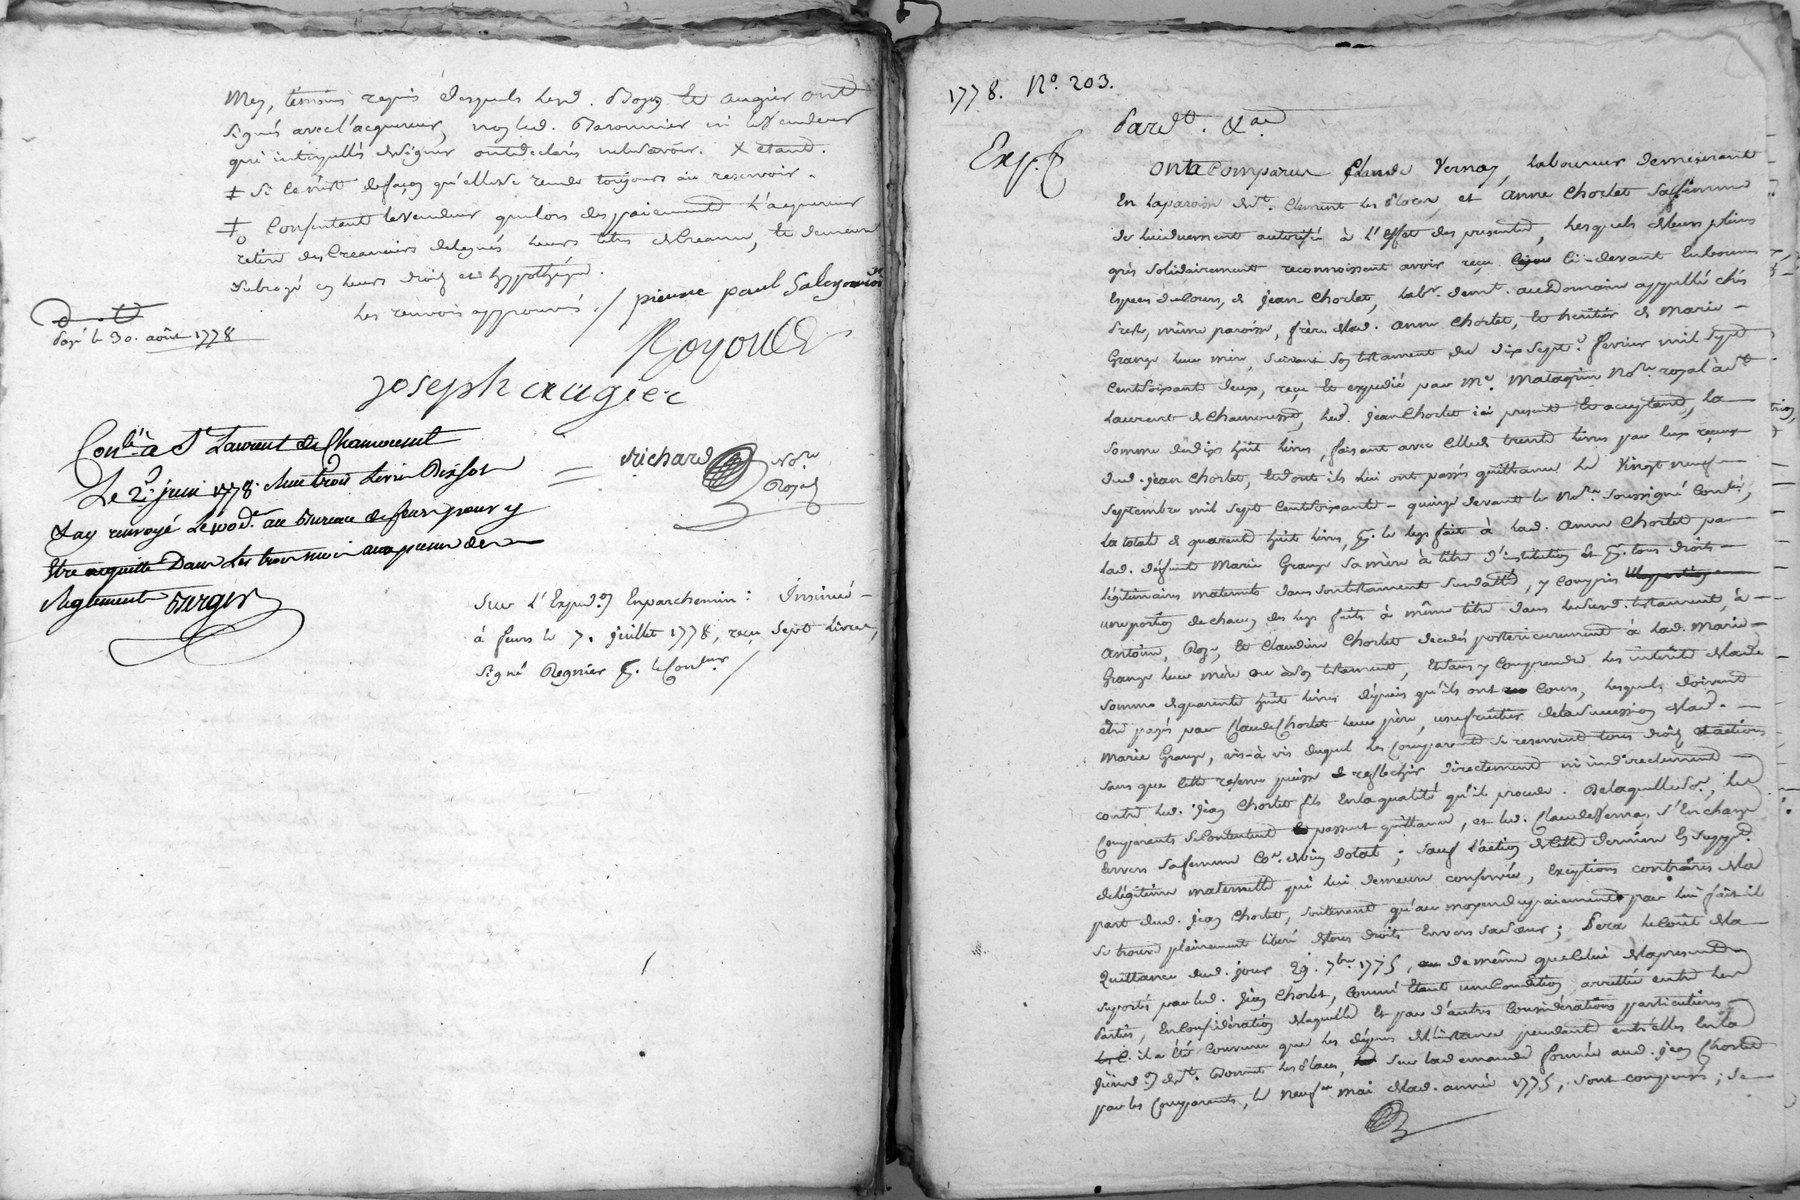 Mey, témoins requis desquels lesd. Boyer et augier ont
signés avec l'acquereur, non led. Baronnier ni le vendeur
qui interpellés de signer ont déclarés ne le savoir. X étant.
‡ Si ce n'est de façon qu'elle se rende toujours au reservoir.
‡o Consentant le vendeur que lors des paiements l'acquereur
retire des Creanciers delegués leurs titres de creance, et demeure
subrogé en leurs droits et hypothéques.
Les renvois approuvés. / pierre paul
payé le 30. août 1778
joseph augier
Con.lé à St Laurent de Chamousset
Le 2. juin 1778.
Richard No.re
Royal
Jay renvoyé le au Bureau de feurs pour y
Etre acquitté Dans les trois mois aux peines des
Reglements
Sur l'Exped.on En parchemin: Insinué
à feurs le 7. juillet 1778, reçu sept livres,
signé Regnier p. le Con.leur /
1778. No. 203.
Pardt. &a
Exp. f
Ont comparus Claude Vernay, laboureur demeurant
en la paroisse de St. Clement les places, et anne Chorlet sa femme
de lui duement autorisée à l'effet des presentes, lesquels de leurs pleins
grés solidairement reconnoissent avoir reçu ci-devant en bonnes
Especes du Cours, de jean Chorlet, lab.r dem.t au Domaine appellé chés
même paroisse, frère de lad. anne Chorlet, et héritier de Marie
Grange leur mère, suivant son testament du dix sept février mil sept
Cent soixante deux, reçu et expedié par Me. Matagrin No.re royal à St
Laurent de Chamousset, led. jean Chorlet ici present et acceptant, la
somme de dix huit livres, faisant avec celle de trente livres par eux reçue
dud. jean Chorlet, et dont ils lui ont passés quittance le vingt neuf
septembre mil sept Cent soixante-quinze devant le No.re soussigné Con.lée,
la totale de quarente huit livres, p. le legs fait à lad. anne Chorlet par
lad. défunte Marie Grange sa mère à titre d'institution et p. tous droits
légitimaires maternels dans son testament susdatté, y compris
une portion de chacun des legs faits à même titre dans le susd. testament, à
antoine, et Claudine Chorlet decedés posterieurement à lad. Marie
Grange leur mère ou à son testament, et sans y comprendre les intérêts de lad.
somme de quarente huit livres depuis qu'ils ont cours, lesquels doivent
être payés par Claude Chorlet leur père, usufruitier de la succession de lad.
Marie Grange, vis-à vis duquel les Comparants se reservent tous droits et actions
sans que cette reserve puisse reflechir directement ni indirectement
contre led. jean Chorlet fils en la qualité qu'il procede. De laquelle so.e, les
Comparants se contentent et passent quittance, et led. Claude Vernay s'En charge
Envers sa femme co.e de bien dotal; sauf l'action de cette derniere En supp.t
de légitime maternelle qui lui demeure conservée, Exceptions contraires de la
part dud. jean Chorlet, soutenant qu'au moyen du paiement par lui fait il
se trouve pleinement liberé de tous droits Envers sa sœur; sera le coût de la
Quittance dud. jour 29. 7bre. 1775, de même que celui des presentes
suportés par led. jean Chorlet, comme étant une Condition arrettée entre les
Parties, En consideration de laquelle Et par d'autres Considérations particulieres
il a été convenu que les dépens de l'instance pendante entr'elles en la
jurisd.on de St. les places, sur la demande formée aud. jean Chorlet
par les Comparants, le neuf mai de lad. année 1775, sont compensés; de